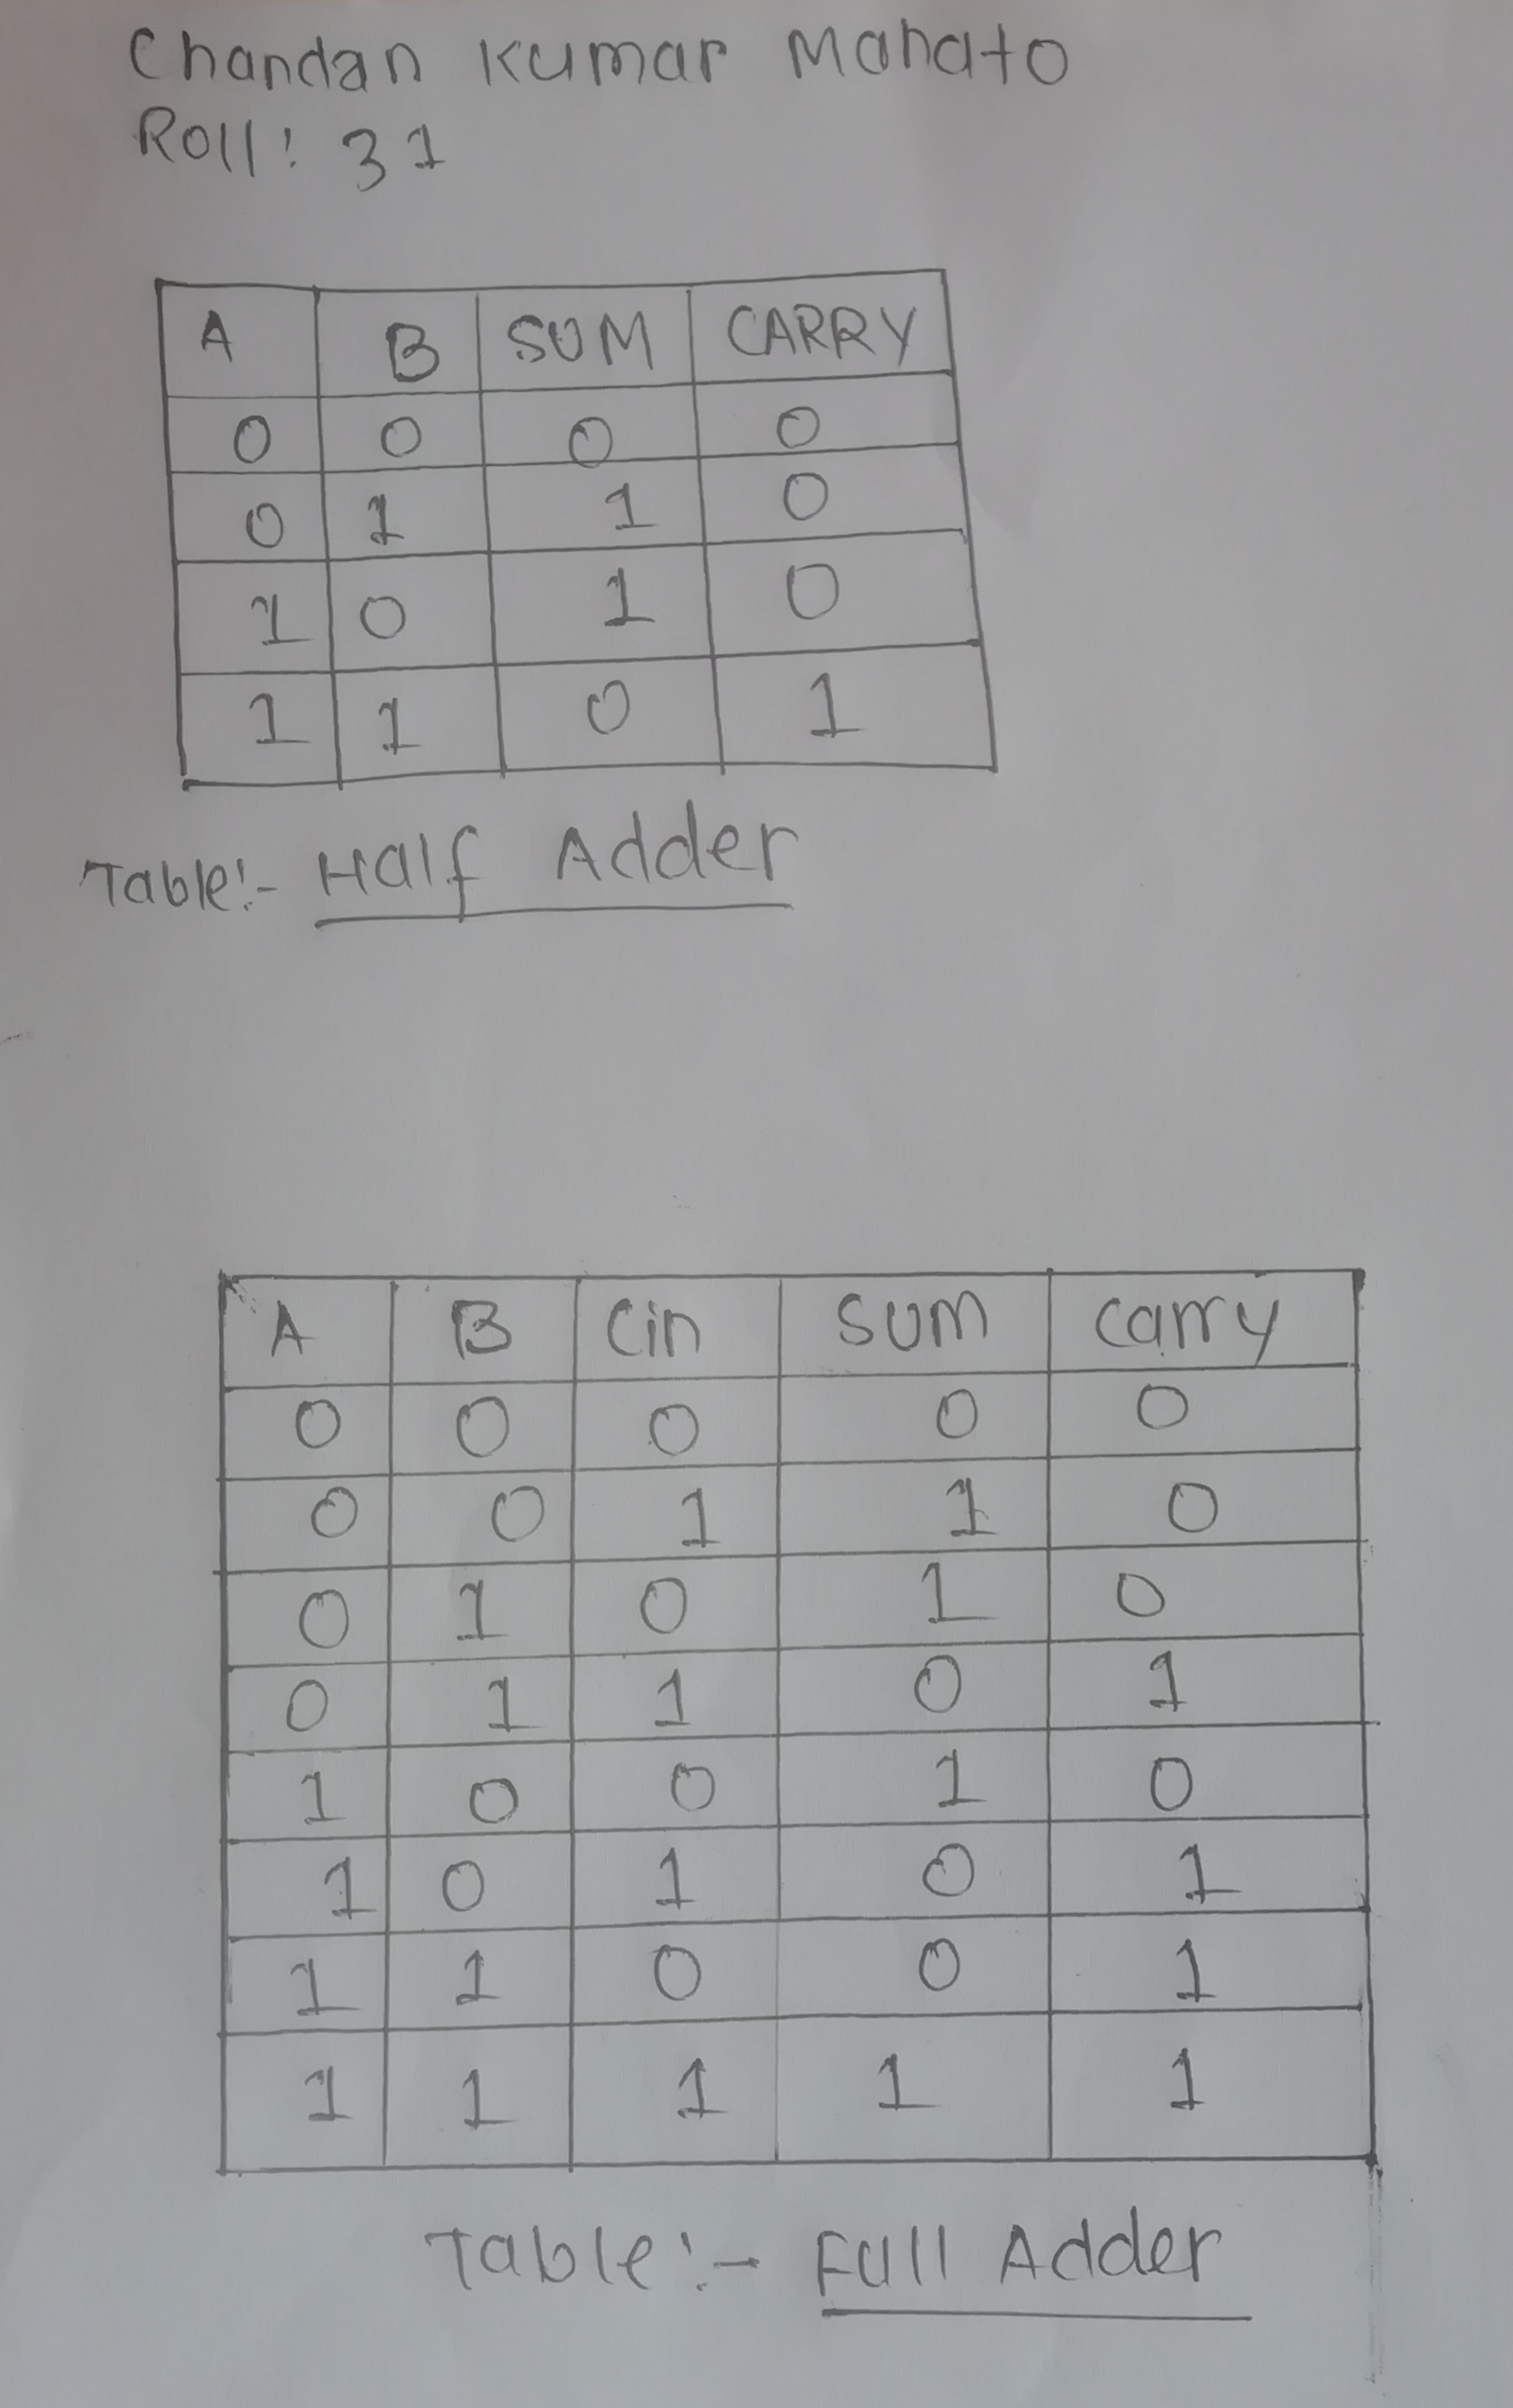 Chandan Kumar Mahato
Roll: 31
A B SUM CARRY
0 0 0 0
0 1 1 0
1 0 1 0
1 1 0 1
Table:- Half Adder
A B Cin SUM Carry
0 0 0 0 0
0 0 1 1 0
0 1 0 1 0
0 1 1 0 1
1 0 0 1 0
1 0 1 0 1
1 1 0 0 1
1 1 1 1 1
Table:- Full Adder